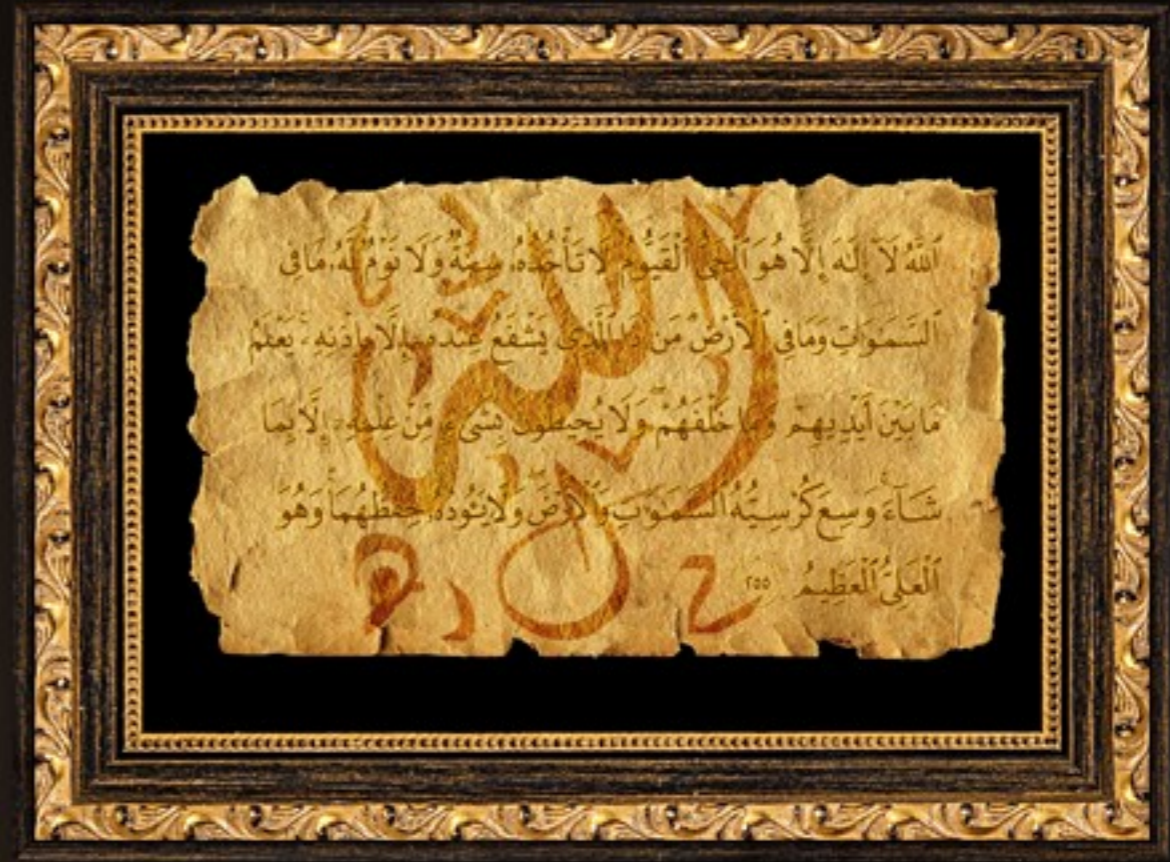 ٱللَّهُ لَآ إِلَـٰهَ إِلَّا هُوَ ٱلْحَىُّ ٱلْقَيُّومُ لَا تَأْخُذُهُۥ سِنَةٌ وَلَا نَوْمٌ لَّهُۥ مَا فِى
ٱلسَّمَـٰوَٰتِ وَمَا فِى ٱلْأَرْضِ مَن ذَا ٱلَّذِى يَشْفَعُ عِندَهُۥٓ إِلَّا بِإِذْنِهِۦ يَعْلَمُ
مَا بَيْنَ أَيْدِيهِمْ وَمَا خَلْفَهُمْ وَلَا يُحِيطُونَ بِشَىْءٍ مِّنْ عِلْمِهِۦٓ إِلَّا بِمَا
شَآءَ وَسِعَ كُرْسِيُّهُ ٱلسَّمَـٰوَٰتِ وَٱلْأَرْضَ وَلَا يَـُٔودُهُۥ حِفْظُهُمَا وَهُوَ
ٱلْعَلِىُّ ٱلْعَظِيمُ ٢٥٥
الله